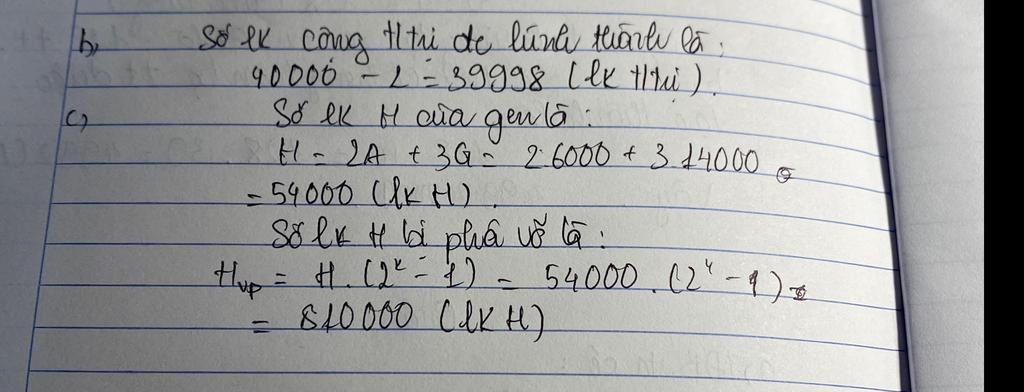 b, Số lk cộng H trị đc hình thành là:
40000 - 2 = 39998 (lk H trị).
c, Số lk H của gen là:
H = 2A + 3G = 2.6000 + 3.14000
= 54000 (lk H).
Số lk H bị phá vỡ là:
Hvp = H.(2ᵏ - 1) = 54000.(2⁴ - 1)
= 810000 (lk H)